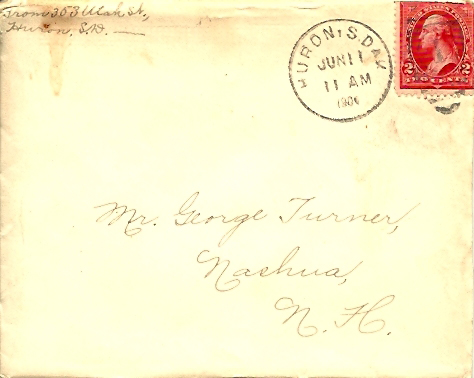 From 353 Utah St.,
Huron, S.D.
HURON, S. DAK.
JUN 11
11 AM
2 2
Mr. George Turner,
Nashua,
N. H.